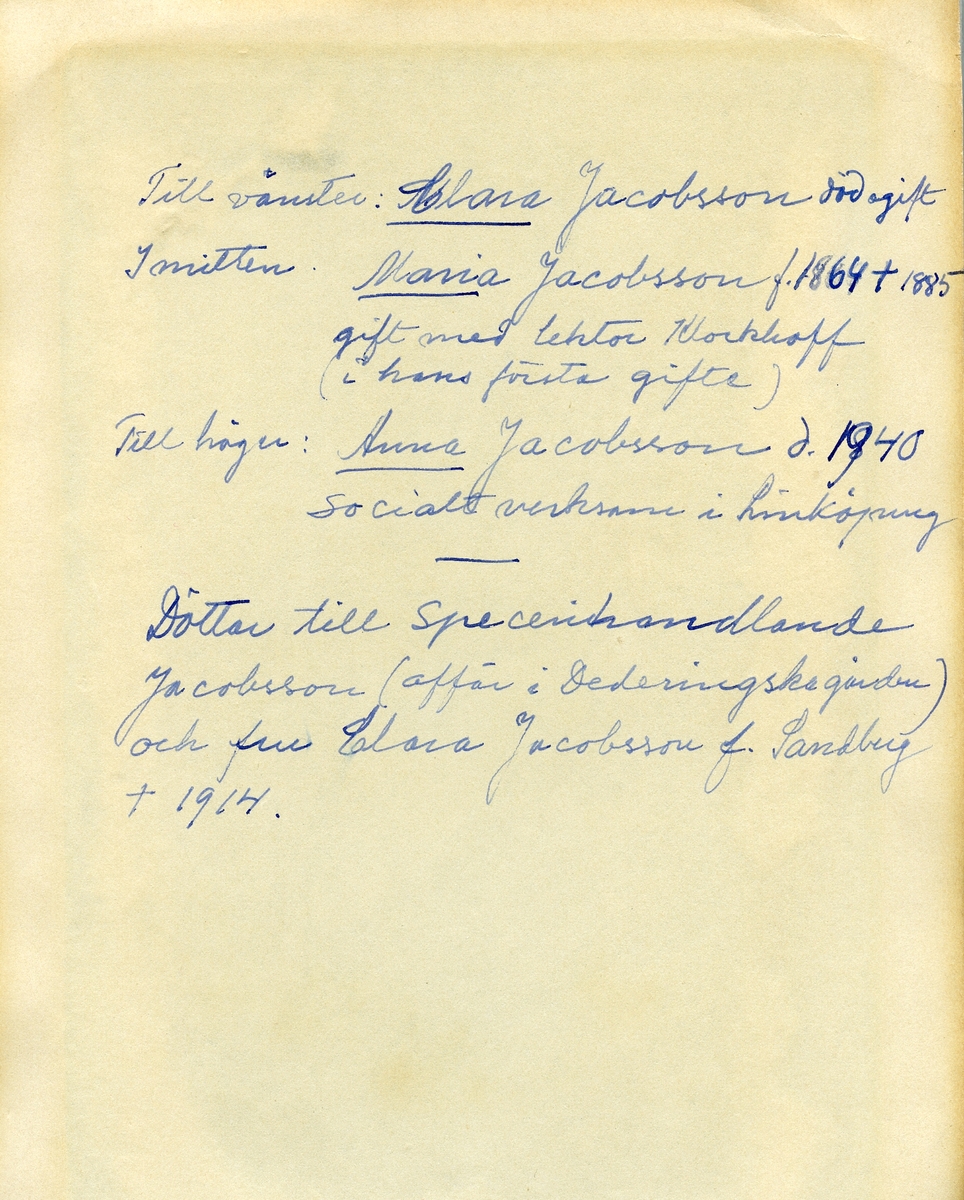 Till vänster: Clara Jacobsson död ogift
I mitten. Maria Jacobsson f. 1864 † 1885
gift med lektor Klockhoff
(i hans första gifte)
Till höger: Anna Jacobsson d. 1940
Socialt verksam i Linköping
Döttar till Specerihandlande
Jacobsson (affär i Dederingska gården)
och fru Clara Jacobsson f. Sandberg
† 1914.